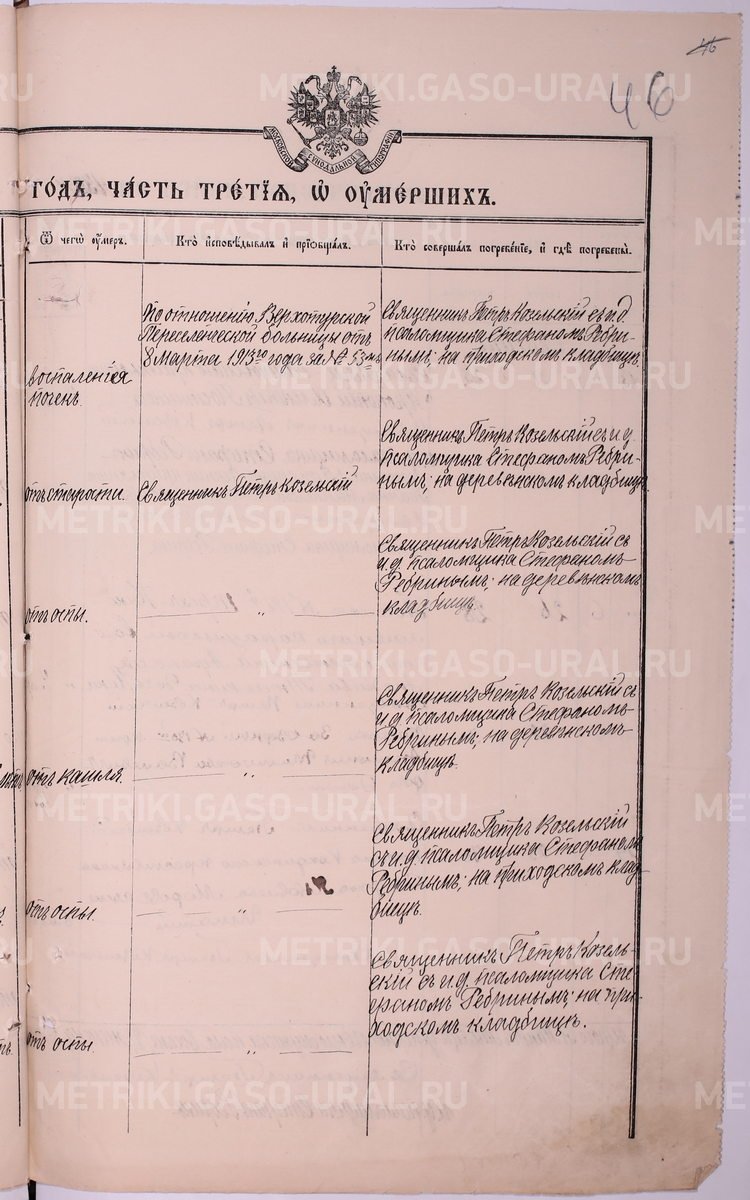 46
46
МОСКОВСКОЙ СѴНОДАЛЬНОЙ ТИПОГРАФІИ
ГОДЪ, ЧА́СТЬ ТРЕ́ТІѦ, Ѡ ОУМЕ́РШИХЪ.
Ѿ чегѡ̀ оу҆́меръ.
Кто̀ и҆сповѣ́дывалъ и҆ прїѡбща́лъ.
Кто̀ соверша́лъ погребе́нїе, и҆ гдѣ̀ погребены̀.
воспаленія
почекъ.
По отношенію Верхотурской
Переселенческой больницы отъ
8 Марта 1913го года за № 53мъ
Священникъ Петръ Козельскій съ и.д.
псаломщика Стефаномъ Ребри-
нымъ; на приходскомъ кладбищѣ.
отъ старости.
Священникъ Петръ Козельскій
Священникъ Петръ Козельскій съ и.д.
псаломщика Стефаномъ Ребри-
нымъ; на деревенскомъ кладбищѣ.
отъ оспы.
— „ —
Священникъ Петръ Козельскій съ
и.д. псаломщика Стефаномъ
Ребринымъ; на деревенскомъ
кладбищѣ.
отъ кашля.
— „ —
Священникъ Петръ Козельскій съ
и.д. псаломщика Стефаномъ
Ребринымъ; на деревенскомъ
кладбищѣ.
отъ оспы.
— „ —
Священникъ Петръ Козельскій
съ и.д. псаломщика Стефаномъ
Ребринымъ; на приходскомъ клад-
бищѣ.
отъ оспы
— „ —
Священникъ Петръ Козель-
скій съ и.д. псаломщика Сте-
фаномъ Ребринымъ; на при-
ходскомъ кладбищѣ.
METRIKI.GASO-URAL.RU